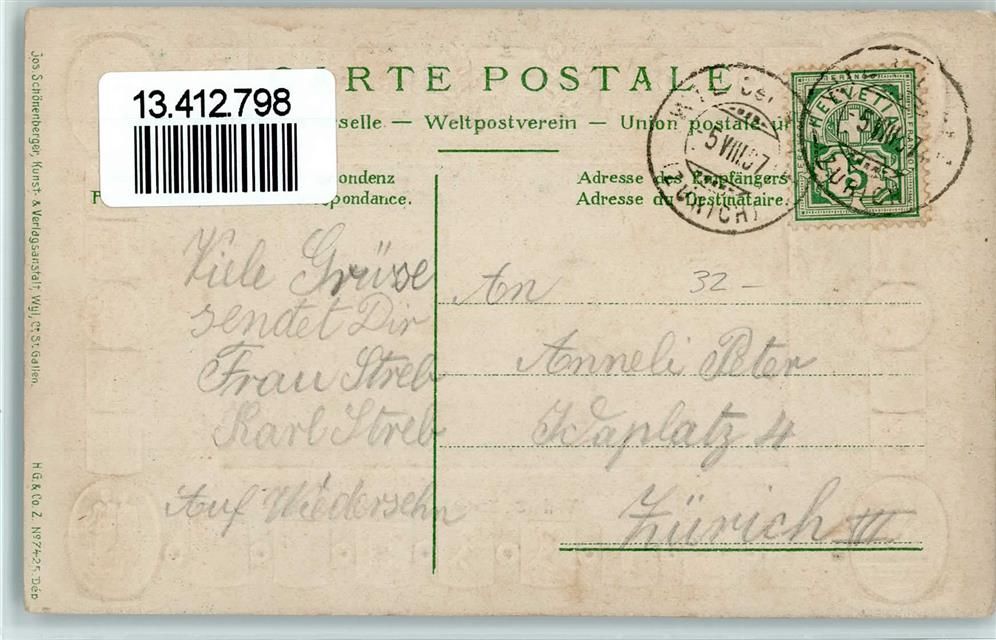 13.412.798
CARTE POSTALE
selle — Weltpostverein — Union postale
Adresse des Empfängers
Adresse du Destinataire.
5 VIII 07
(ZÜRICH)
HELVETIA
5
Viele Grüsse
sendet Dir
Frau Streb
Karl Streb
Auf Wiedersehn
32 –
An
Anneli Peter
Idaplatz 4
Zürich III
Jos. Schönenberger, Kunst- & Verlagsanstalt, Wyl, Ct. St. Gallen.
H.G. & Co. Z. Nº 7425. Dép.